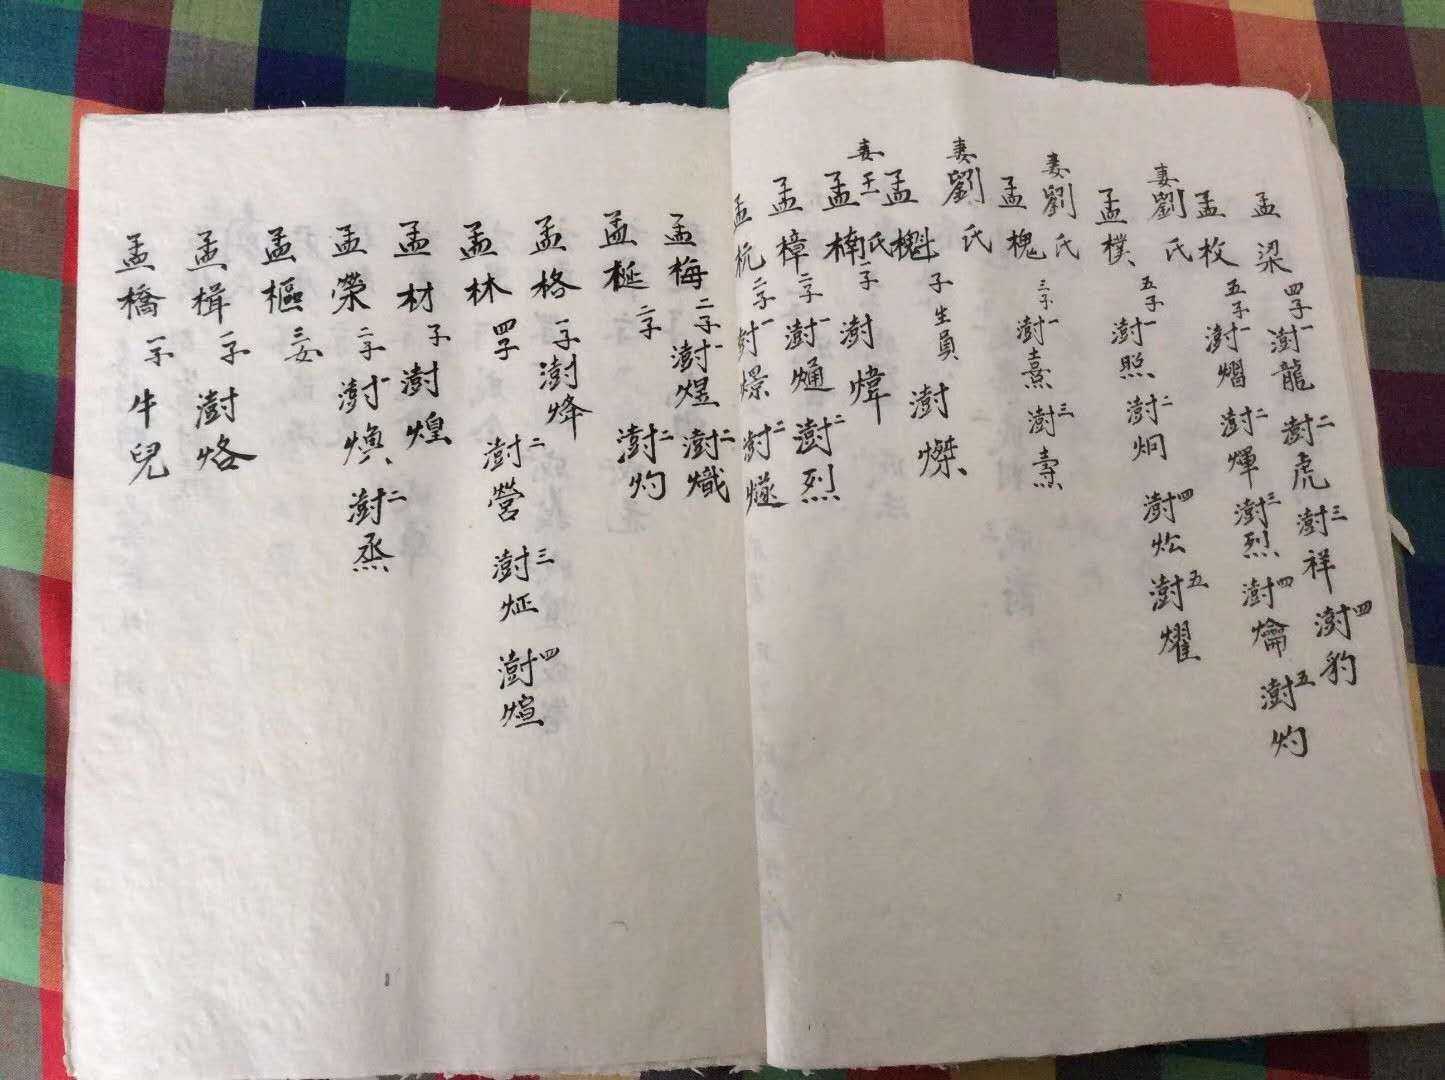 孟梁 四子 澍龍一 澍虎二 澍祥三 澍豹四
孟枚 五子 澍熠一 澍煇二 澍烈三 澍爚四 澍灼五
妻劉氏
孟樸 五子 澍照一 澍炯二 澍炂四 澍耀五
妻劉氏
孟槐 三子 澍熹一 澍燾三
妻劉氏
孟櫆 子生員 澍燦
妻王氏
孟楠 一子 澍煒
孟樟 二子 澍一 澍烈二
孟杭 二子 澍燝一 澍燧二
孟梅 二子 澍煜一 澍熾二
孟梴 二子 澍灼二
孟格 一子 澍烽
孟林 四子 澍營二 澍炡三 澍煊四
孟材 子 澍煌
孟榮 二子 澍煥一 澍烝二
孟樞 三女
孟楫 一子 澍烙
孟橋 一子 牛兒